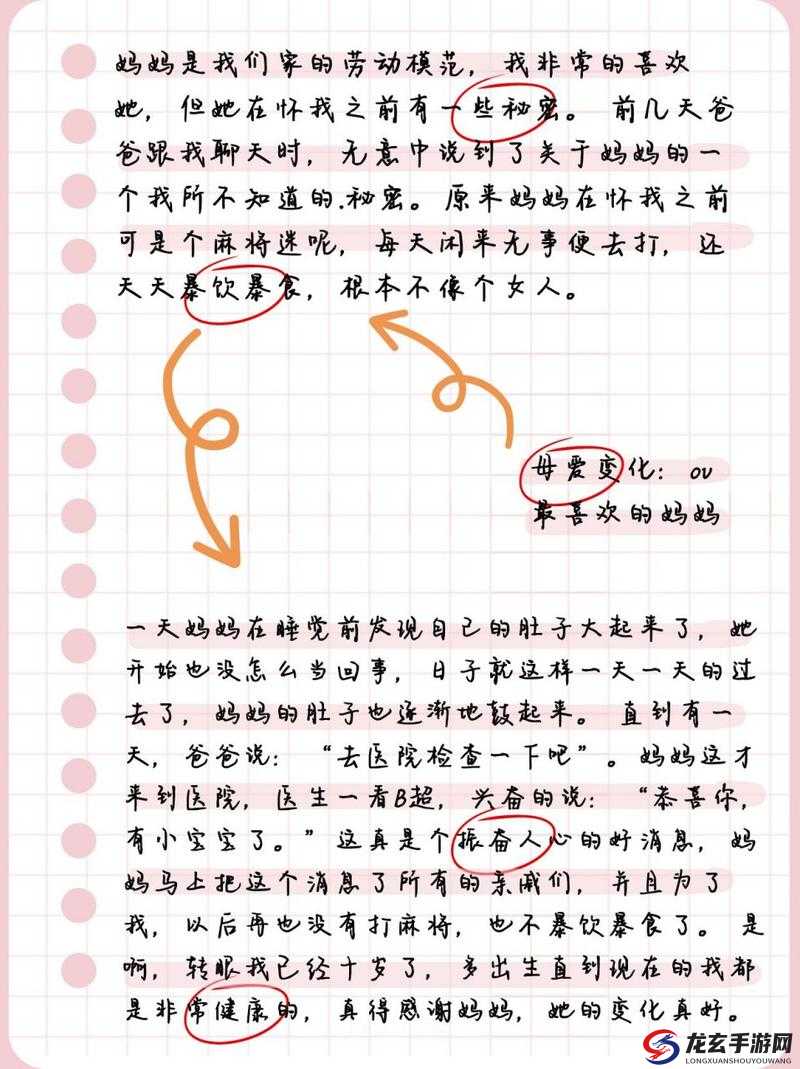 妈妈是我们家的劳动模范，我非常的喜欢
她，但她在怀我之前有一些秘密。 前几天爸
爸跟我聊天时，无意中说到了关于妈妈的一
个我所不知道的.秘密。原来妈妈在怀我之前
可是个麻将迷呢，每天闲来无事便去打，还
天天暴饮暴食，根本不像个女人。
母爱变化：ov
最喜欢的妈妈
一天妈妈在睡觉前发现自己的肚子大起来了，她
开始也没怎么当回事，日子就这样一天一天的过
去了，妈妈的肚子也逐渐地鼓起来。 直到有一
天，爸爸说：“去医院检查一下吧”。妈妈这才
来到医院，医生一看B超，兴奋的说：“恭喜你，
有小宝宝了。”这真是个振奋人心的好消息，妈
妈马上把这个消息了所有的亲戚们，并且为了
我，以后再也没有打麻将，也不暴饮暴食了。 是
啊，转眼我已经十岁了，多出生直到现在的我都
是非常健康的，真得感谢妈妈，她的变化真好。
龙玄手游网
LONGXUANSHOUYOUWANG